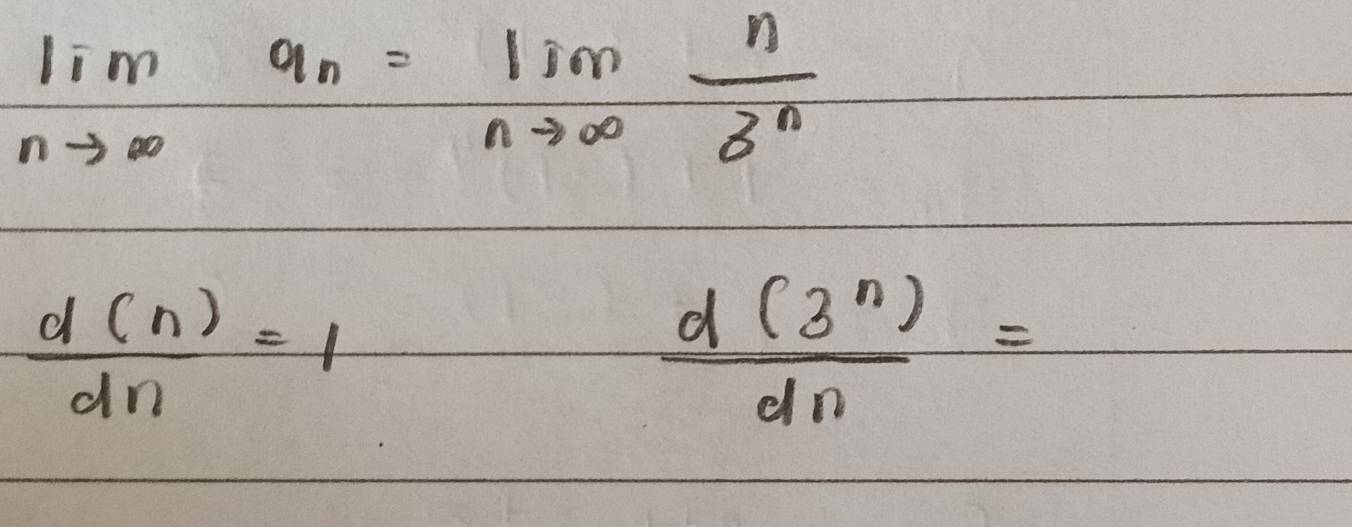 lim a_n = lim n/3^n
n→∞ n→∞
d(n)/dn = 1 d(3^n)/dn =